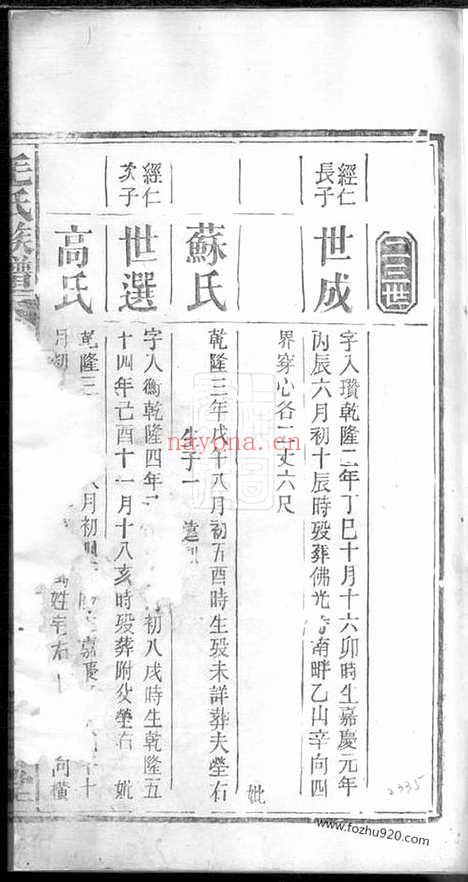 二三世
經仁
長子
世成
字人瓚乾隆二年丁巳十月十六卯時生嘉慶元年
丙辰六月初十辰時歿葬佛光 南畔乙山辛向四
界穿心各二丈六尺
妣
蘇氏
乾隆三年戊午八月初五酉時生歿未詳葬夫塋右
生子一
經仁
次子
世選
字人衡乾隆四年 初八戌時生乾隆五
十四年己酉十一月十八亥時歿葬附父塋右
妣
高氏
乾隆三 八月初 嘉慶 十
月初 姓宅右 向橫
毛氏族譜
2335
nayona.cn
www.fozhu920.com